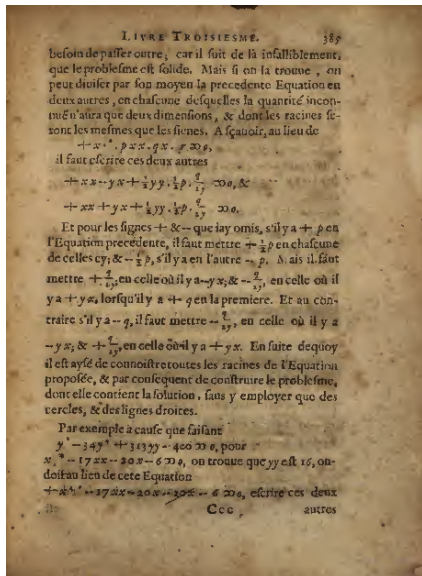 LIVRE TROISIESME. 385
besoin de passer outre, car il suit de là infalliblement,
que le problesme est solide. Mais si on la trouue, on
peut diuiser par son moyen la precedente Equation en
deux autres, en chascune desquelles la quantité incon-
nuë n'aura que deux dimensions, & dont les racines se-
ront les mesmes que les sienes. A sçauoir, au lieu de
+x⁴*.pxx.qx.r ∞0,
il faut escrire ces deux autres
+xx--yx+½yy.½p.q/2y ∞0, &
+xx+yx+½yy.½p.q/2y ∞0.
Et pour les signes + &-- que iay omis, s'il y a + p en
l'Equation precedente, il faut mettre +½p en chascune
de celles cy; &--½p, s'il y a en l'autre --p. Mais il faut
mettre +q/2y, en celle où il y a--yx; &--q/2y, en celle où il
y a +yx, lorsqu'il y a +q en la premiere. Et au con-
traire s'il y a--q, il faut mettre--q/2y, en celle où il y a
--yx; & +q/2y, en celle où il y a +yx. En suite dequoy
il est aysé de connoistre toutes les racines de l'Equation
proposée, & par consequent de construire le problesme,
dont elle contient la solution, sans y employer que des
cercles, & des lignes droites.
Par exemple à cause que faisant
y⁶--34y⁴+313yy--400 ∞0, pour
x⁴*--17xx--20x--6 ∞0, on trouue que yy est 16, on
doit au lieu de cete Equation
+x⁴*--17xx--20x--20x--6 ∞0, escrire ces deux
Ccc autres